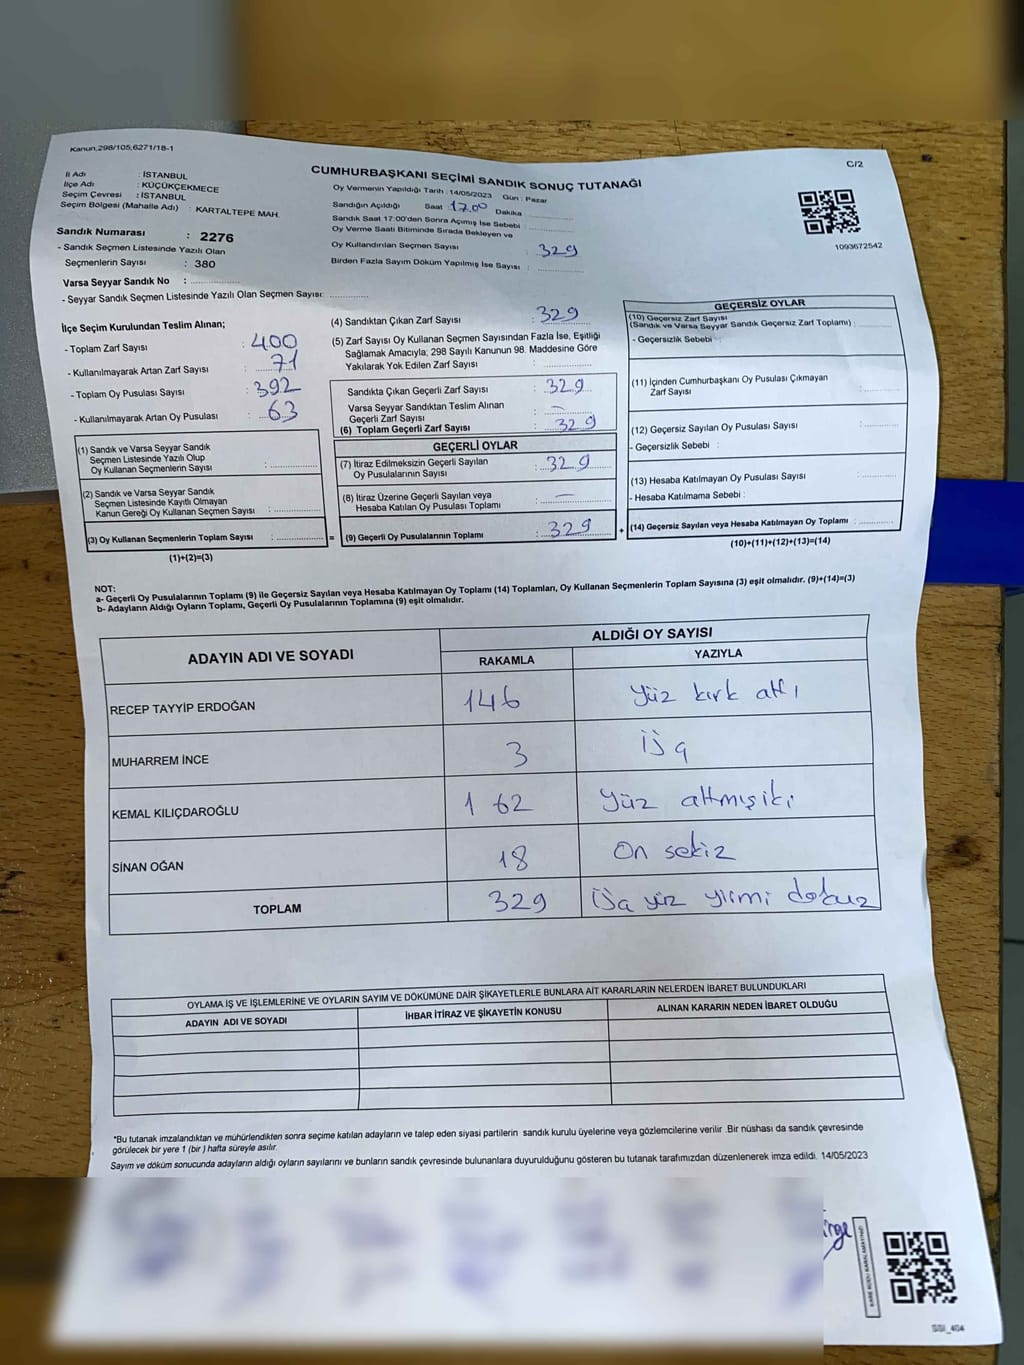 Kanun,298/105,6271/18-1
C/2
CUMHURBAŞKANI SEÇİMİ SANDIK SONUÇ TUTANAĞI
İl Adı : İSTANBUL
İlçe Adı : KÜÇÜKÇEKMECE
Seçim Çevresi : İSTANBUL
Seçim Bölgesi (Mahalle Adı) : KARTALTEPE MAH.
Sandık Numarası : 2276
- Sandık Seçmen Listesinde Yazılı Olan
Seçmenlerin Sayısı : 380
Varsa Seyyar Sandık No :
- Seyyar Sandık Seçmen Listesinde Yazılı Olan Seçmen Sayısı:
Oy Vermenin Yapıldığı Tarih : 14/05/2023 Gün : Pazar
Sandığın Açıldığı Saat 17.00 Dakika
Sandık Saat 17:00'den Sonra Açımış İse Sebebi :
Oy Verme Saati Bitiminde Sırada Bekleyen ve
Oy Kullandırılan Seçmen Sayısı : 329
Birden Fazla Sayım Döküm Yapılmış İse Sayısı :
1093672542
İlçe Seçim Kurulundan Teslim Alınan;
- Toplam Zarf Sayısı : 400
- Kullanılmayarak Artan Zarf Sayısı : 71
- Toplam Oy Pusulası Sayısı : 392
- Kullanılmayarak Artan Oy Pusulası : 63
(1) Sandık ve Varsa Seyyar Sandık
Seçmen Listesinde Yazılı Olup
Oy Kullanan Seçmenlerin Sayısı :
(2) Sandık ve Varsa Seyyar Sandık
Seçmen Listesinde Kayıtlı Olmayan
Kanun Gereği Oy Kullanan Seçmen Sayısı :
(3) Oy Kullanan Seçmenlerin Toplam Sayısı : =
(1)+(2)=(3)
(4) Sandıktan Çıkan Zarf Sayısı : 329
(5) Zarf Sayısı Oy Kullanan Seçmen Sayısından Fazla İse, Eşitliği
Sağlamak Amacıyla; 298 Sayılı Kanunun 98. Maddesine Göre
Yakılarak Yok Edilen Zarf Sayısı :
Sandıkta Çıkan Geçerli Zarf Sayısı : 329
Varsa Seyyar Sandıktan Teslim Alınan
Geçerli Zarf Sayısı : –
(6) Toplam Geçerli Zarf Sayısı : 329
GEÇERLİ OYLAR
(7) İtiraz Edilmeksizin Geçerli Sayılan
Oy Pusulalarının Sayısı : 329
(8) İtiraz Üzerine Geçerli Sayılan veya
Hesaba Katılan Oy Pusulası Toplamı : –
(9) Geçerli Oy Pusulalarının Toplamı : 329 +
GEÇERSİZ OYLAR
(10) Geçersiz Zarf Sayısı
(Sandık ve Varsa Seyyar Sandık Geçersiz Zarf Toplamı) :
- Geçersizlik Sebebi :
(11) İçinden Cumhurbaşkanı Oy Pusulası Çıkmayan
Zarf Sayısı :
(12) Geçersiz Sayılan Oy Pusulası Sayısı :
- Geçersizlik Sebebi :
(13) Hesaba Katılmayan Oy Pusulası Sayısı :
- Hesaba Katılmama Sebebi :
(14) Geçersiz Sayılan veya Hesaba Katılmayan Oy Toplamı :
(10)+(11)+(12)+(13)=(14)
NOT:
a- Geçerli Oy Pusulalarının Toplamı (9) ile Geçersiz Sayılan veya Hesaba Katılmayan Oy Toplamı (14) Toplamları, Oy Kullanan Seçmenlerin Toplam Sayısına (3) eşit olmalıdır. (9)+(14)=(3)
b- Adayların Aldığı Oyların Toplamı, Geçerli Oy Pusulalarının Toplamına (9) eşit olmalıdır.
ADAYIN ADI VE SOYADI ALDIĞI OY SAYISI
RAKAMLA YAZIYLA
RECEP TAYYİP ERDOĞAN 146 Yüz kırk altı
MUHARREM İNCE 3 Üç
KEMAL KILIÇDAROĞLU 162 Yüz altmışiki
SİNAN OĞAN 18 On sekiz
TOPLAM 329 Üç yüz yirmi dokuz
OYLAMA İŞ VE İŞLEMLERİNE VE OYLARIN SAYIM VE DÖKÜMÜNE DAİR ŞİKAYETLERLE BUNLARA AİT KARARLARIN NELERDEN İBARET BULUNDUKLARI
ADAYIN ADI VE SOYADI İHBAR İTİRAZ VE ŞİKAYETİN KONUSU ALINAN KARARIN NEDEN İBARET OLDUĞU
*Bu tutanak imzalandıktan ve mühürlendikten sonra seçime katılan adayların ve talep eden siyasi partilerin sandık kurulu üyelerine veya gözlemcilerine verilir .Bir nüshası da sandık çevresinde
görülecek bir yere 1 (bir ) hafta süreyle asılır.
Sayım ve döküm sonucunda adayların aldığı oyların sayılarını ve bunların sandık çevresinde bulunanlara duyurulduğunu gösteren bu tutanak tarafımızdan düzenlenerek imza edildi. 14/05/2023
SSİ_404